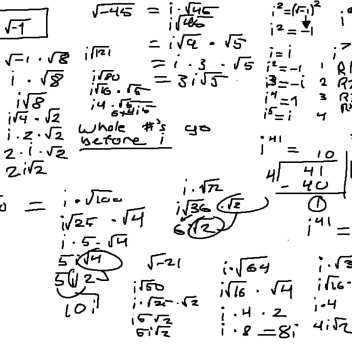 √-1
√-1 · √8
i · √8
i√8
i√4 · √2
i · 2 · √2
2 · i · √2
2i√2
i√121
i√80
i√16 · √5
√-45 = i · √45
i√45
= i√9 · √5
= i · 3 · √5
= 3i√5
Whole #'s go
before i
i²=(√-1)²
i² = -1
i = i
i² = -1
i³ = -i
i⁴ = 1
i⁵ = i
1
2
3
4
i⁴¹ = 10
4 41
- 40
1
i⁴¹ =
= i · √100
i√25 · √4
i · 5 · √4
5i√4
5i2
10i
i · √72
i√36 · √2
6i√2
√-21
i√50
i · √25 · √2
i5√2
5i√2
i · √64
i√16 · √4
i · 4 · 2
i · 8 = 8i
i√16 ·
i · 4
4i√2